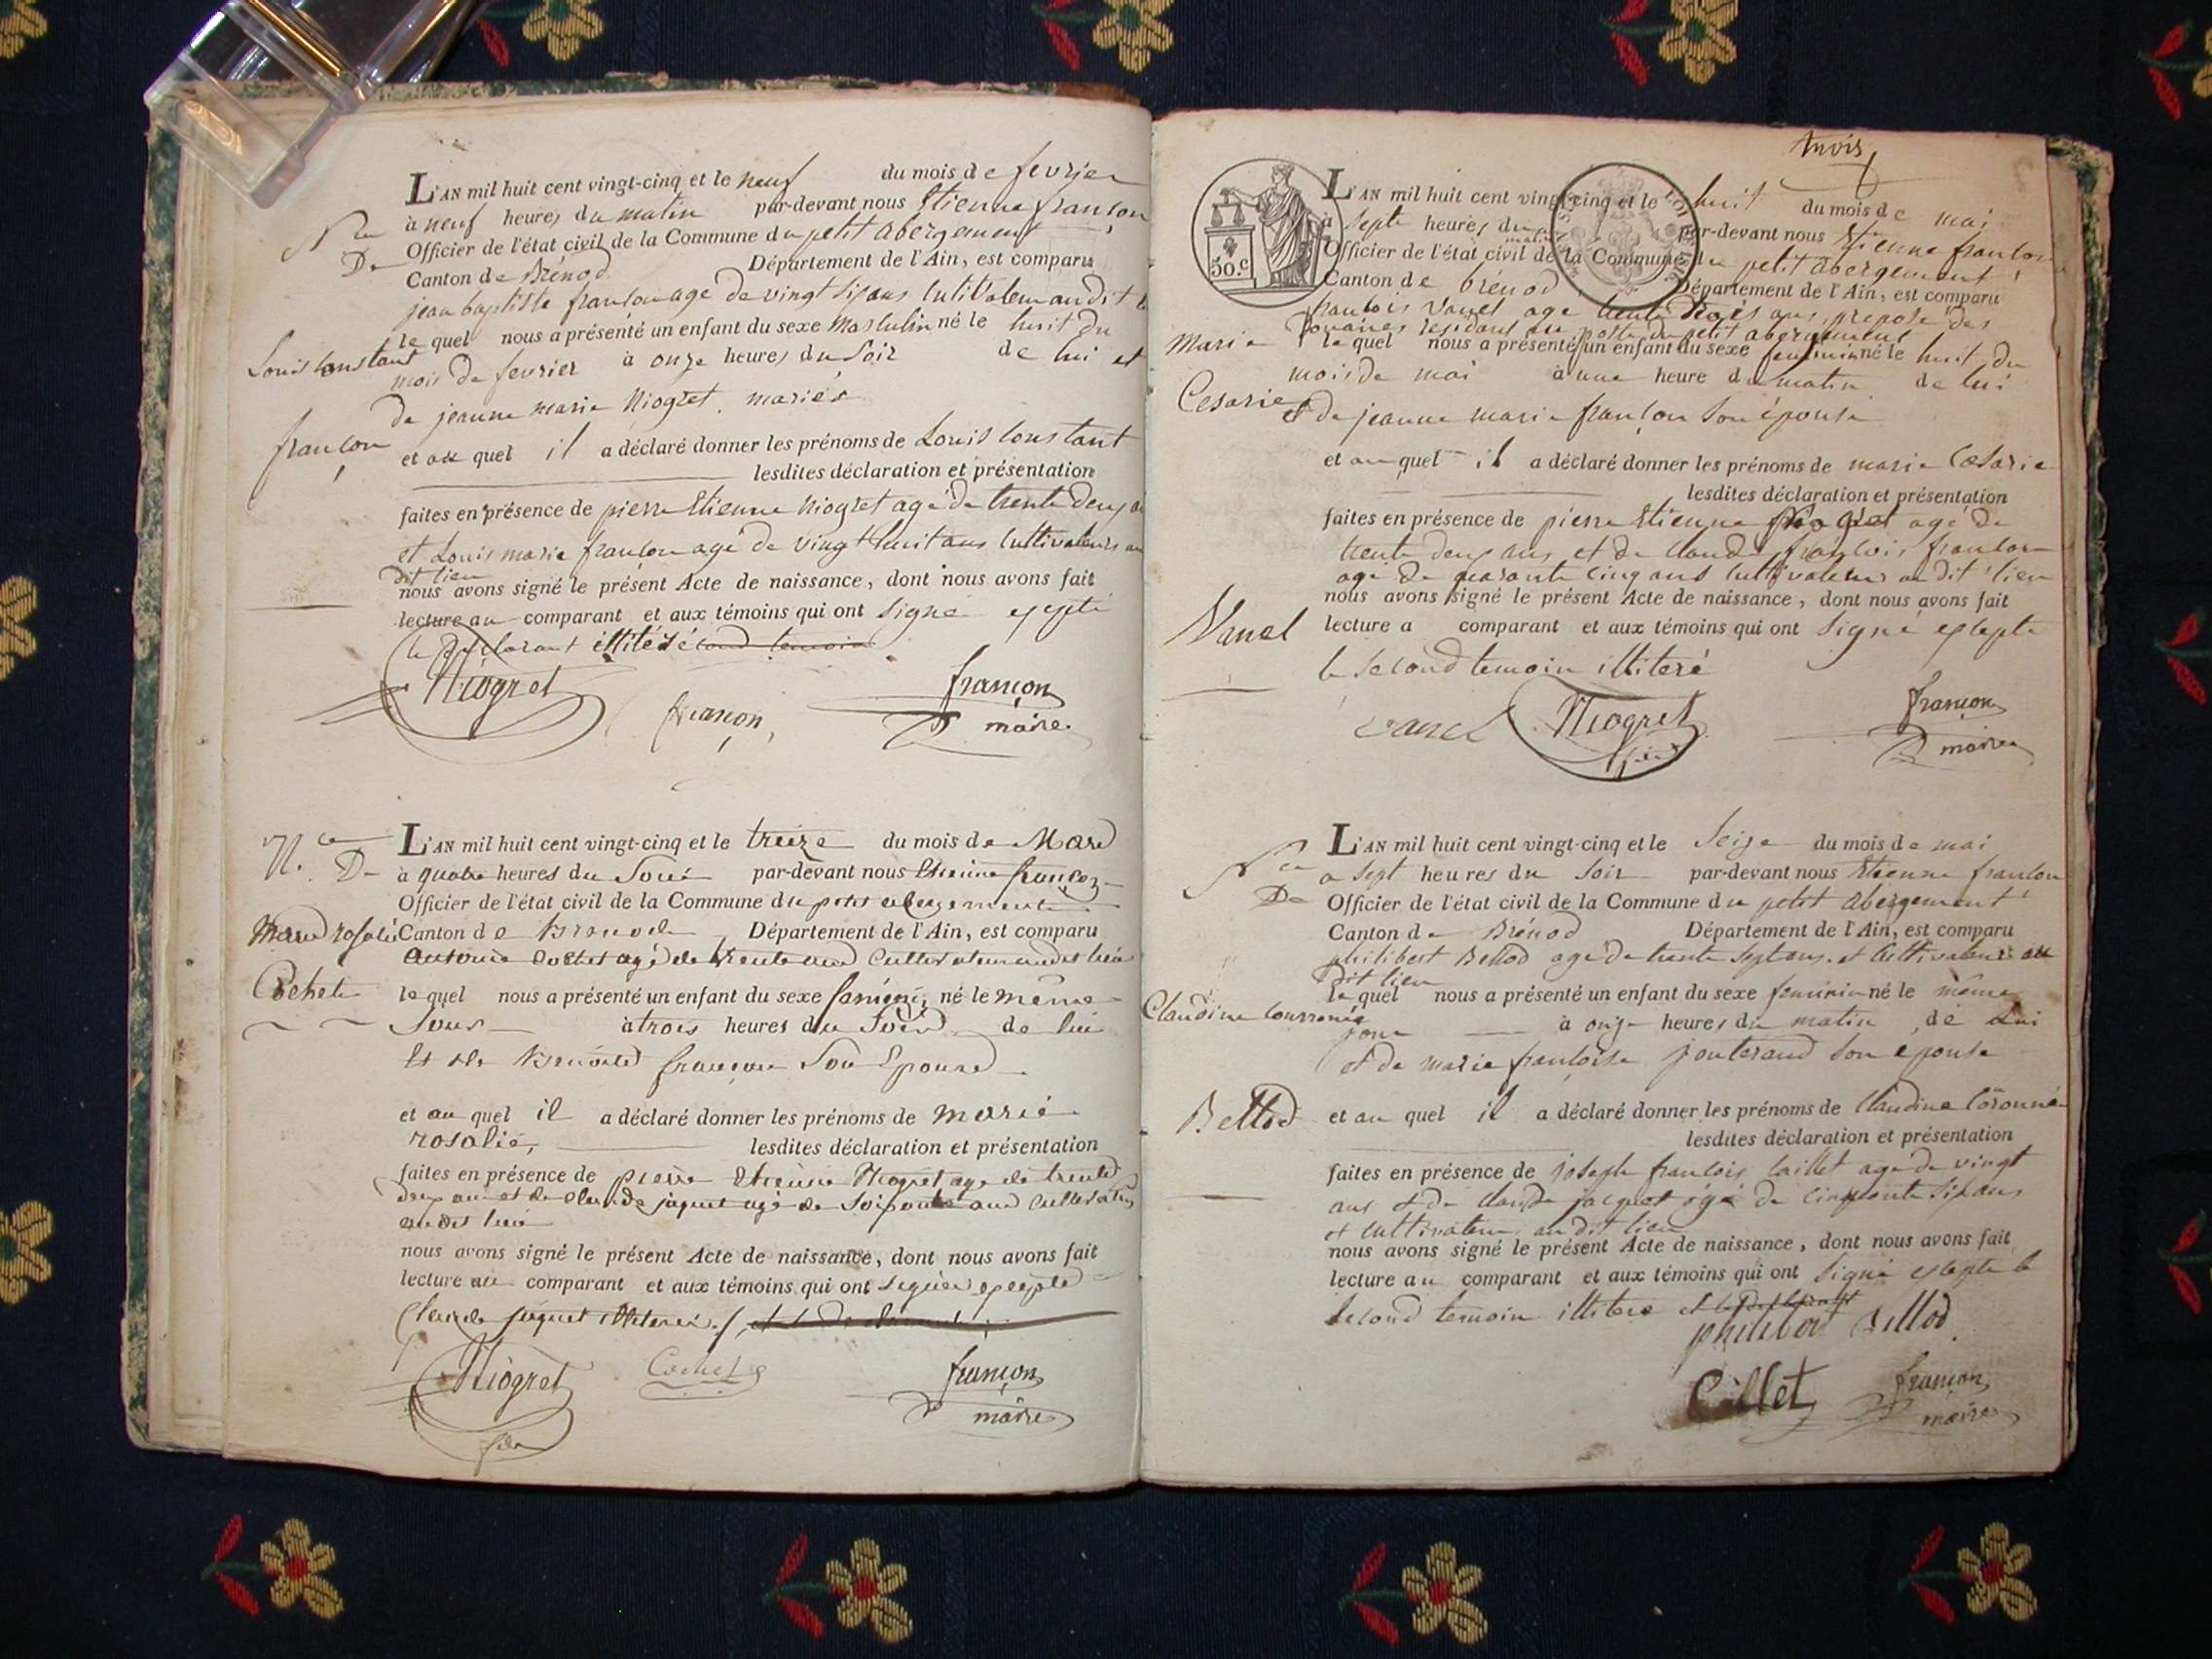 L'AN mil huit cent vingt-cinq et le neuf du mois de fevrier
à neuf heures du matin par-devant nous Etienne françon
Officier de l'état civil de la Commune du petit abergement
Canton de Brénod Département de l'Ain, est comparu
jean baptiste françon agé de vingt six ans cultivateur audit
le quel nous a présenté un enfant du sexe masculin né le huit du
mois de fevrier à onze heures du soir de lui et
de jeanne marie Niogret mariés
et au quel il a déclaré donner les prénoms de Louis Constant
lesdites déclaration et présentation
faites en présence de pierre Etienne Niogret agé de trente deux
et Louis marie françon agé de vingt huit ans cultivateurs au
dit lieu
nous avons signé le présent Acte de naissance, dont nous avons fait
lecture au comparant et aux témoins qui ont signé excepté
le déclarant illitéré
Niogret
françon
françon
maire
Nce
De
Louis Constant
françon
L'AN mil huit cent vingt-cinq et le treize du mois de Mars
à quatre heures du Soir par-devant nous Etienne françon
Officier de l'état civil de la Commune du petit abergement
Canton de Brenod Département de l'Ain, est comparu
Antoine Cochet agé de trente ans Cultivateur audit lieu
le quel nous a présenté un enfant du sexe féminin né le même
Jour à trois heures du Soir de lui
Et de Benoite françon Son Epouse
et au quel il a déclaré donner les prénoms de marie
rosalie, lesdites déclaration et présentation
faites en présence de pierre Etienne Niogret age de trente
deux ans et de claude jaquet agé de Soixante ans Cultivateurs
audit lieu
nous avons signé le présent Acte de naissance, dont nous avons fait
lecture au comparant et aux témoins qui ont signé excepté
Claude jaquet illiteré
Niogret
Cochet
françon
maire
Nce
De
Marie rosalie
Cochet
trois
50.c
L'AN mil huit cent vingt-cinq et le huit du mois de mai
à sept heures du matin par-devant nous Etienne françon
Officier de l'état civil de la Commune du petit abergement
Canton de brénod Département de l'Ain, est comparu
françois Vanel age trente trois ans, préposé des
Douanes residant au poste du petit abergement
le quel nous a présenté un enfant du sexe feminin né le huit du
mois de mai à une heure du matin de lui
et de jeanne marie françon son épouse
et au quel il a déclaré donner les prénoms de marie Cesarie
lesdites déclaration et présentation
faites en présence de pierre Etienne Niogret agé de
trente deux ans et de claude françois françon
agé de quarante cinq ans cultivateurs au dit lieu
nous avons signé le présent Acte de naissance, dont nous avons fait
lecture a comparant et aux témoins qui ont signé excepté
le second temoin illiteré
vanel
Niogret
françon
maire
Marie
Cesarie
Vanel
L'AN mil huit cent vingt-cinq et le seize du mois de mai
a sept heures du soir par-devant nous Etienne françon
Officier de l'état civil de la Commune du petit abergement
Canton de Brénod Département de l'Ain, est comparu
philibert Bellod agé de trente sept ans et cultivateur au
dit lieu
le quel nous a présenté un enfant du sexe feminin né le même
jour à onze heures du matin, de Lui
et de marie françoise jouterand son epouse
et au quel il a déclaré donner les prénoms de Claudine Coronnée
lesdites déclaration et présentation
faites en présence de joseph françois Caillet agé de vingt
ans et de claude jacquet agé de cinquante six ans
et cultivateur au dit lieu
nous avons signé le présent Acte de naissance, dont nous avons fait
lecture au comparant et aux témoins qui ont signé excepté le
second temoin illiteré
philibert Bellod
Caillet
françon
maire
Nce
De
Claudine Couronnée
Bellod